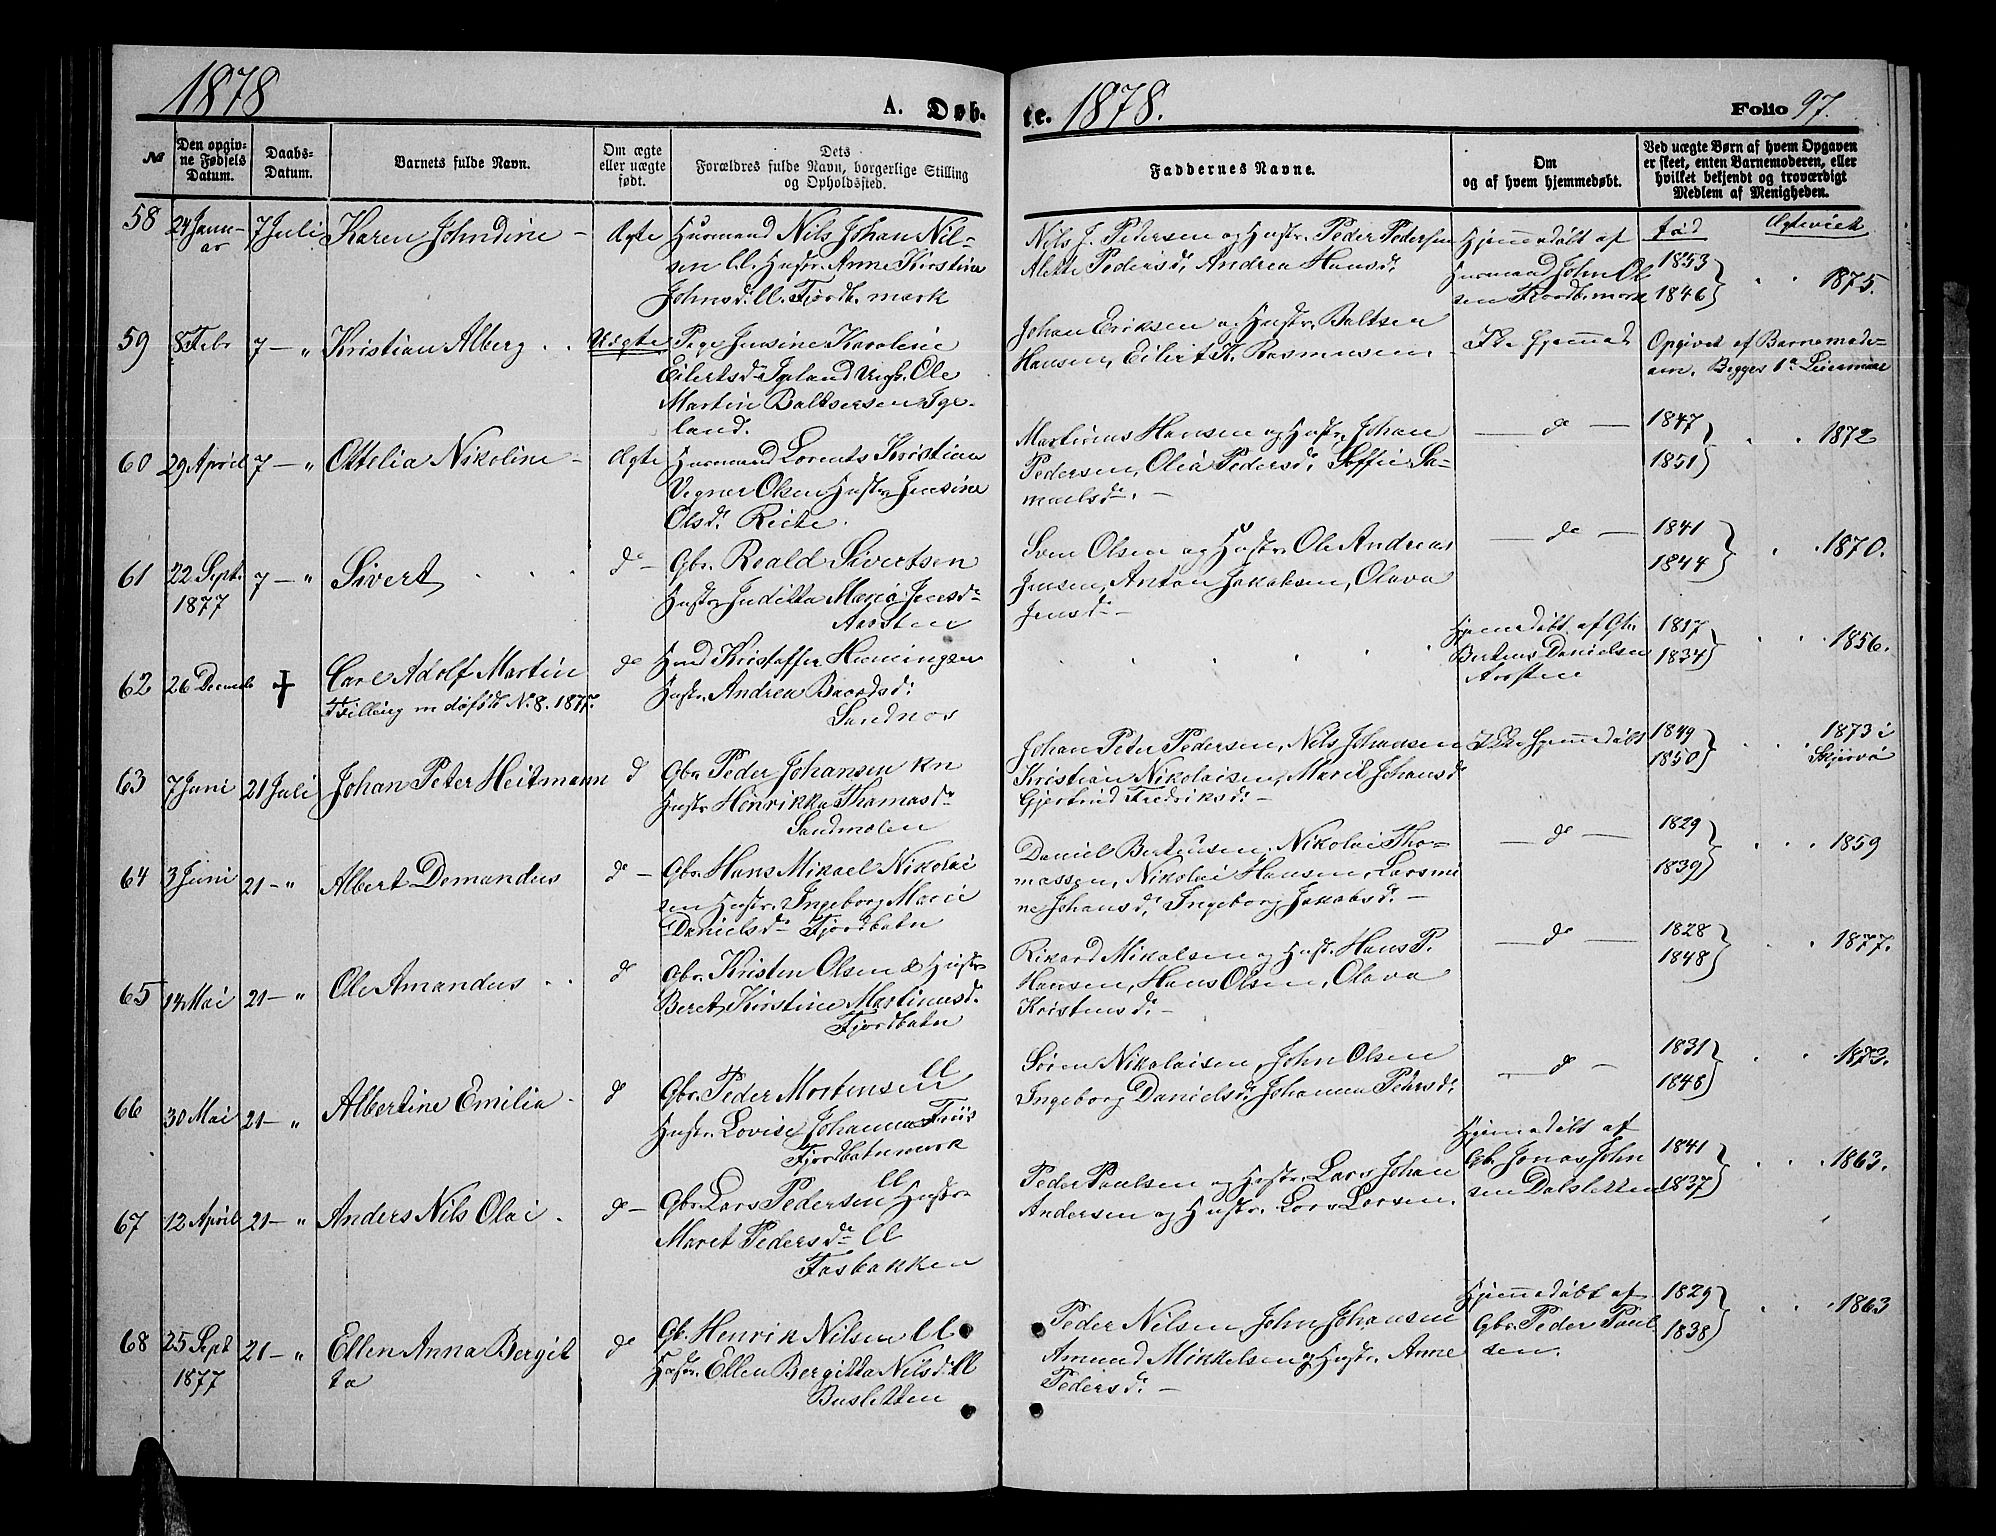 1878
A. Døb-
te. 1878.
Folio 97.
№
Den opgiv-
ne Fødsels
Datum.
Daabs-
Datum.
Barnets fulde Navn.
Om ægte
eller uægte
født.
Dets
Forældres fulde Navn, borgerlige Stilling
og Opholdssted.
Faddernes Navne.
Om
og af hvem hjemmedøbt.
Ved uægte Børn af hvem Opgaven
er skeet, enten Barnemoderen, eller
hvilket bekjendt og troværdigt
Medlem af Menigheden.
58
24 Janu-
ar
7 Juli
Karen Johndine -
Ægte
Huusmand Nils Johan Nil-
sen ll. Hustr. Anne Kirstine
Johnsd. ll. Fjordb. mark
Nils J. Pedersen og Hustr. Peder Pedersen
Alette Pedersd. Andrea Hansd.
Hjemmedøbt af
Huusmand John Ol
sen Fjordb. mark
fød
1853
1846
Ægteviet
1875.
59
8 Febr
7 — "
Kristian Alberg
Uægte
Pige Jensine Karoline
Eilertsd. Igeland Ungk. Ole
Martin Baltsersen Ige-
land.
Johan Eriksen og Hustr. Baltser
Hansen, Eilert K. Rasmussen.
Ikke hjemmed.
Opgivet af Barnemode-
ren. Begges 1e Leiermaal
60
29 April
7 — "
Ottelia Nikoline -
Ægte
Huusmand Lorents Kristian
Vegner Olsen Hustr. Jensine
Olsd.
Martinus Hansen og Hustr. Johan
Pedersen, Olea Pedersd. Soffie Sa-
muelsd. -
— do —
1847
1851
1872
61
22 Sept.
1877
7 — "
Sivert
do -
Gbr. Roald Sivertsen
Hustr. Juditta Maria Jensd.
Aarsten
Sven Olsen og Hustr. Ole Andreas
Jensen, Anton Jakobsen, Olava
Jensd. -
— do —
1841
1844
1870.
62
26 Decemb
†
Carl Adolf Martin
Tvilling m dødfødte No. 8. 1877.
do
Kristoffer Henningsen
Hustr. Andrea Baardsd.
Sandnes
Hjemmedøbt af Gbr
Berteus Danielsen
Aarsten
1817
1834
1856.
63
7 Juni
21 Juli
Johan Peter Heitmann
d
Gbr. Peder Johansen kn
Hustr. Henrikka Thomasd.
Sandmælen
Johan Peter Pedersen, Nils Johansen
Kristian Nikolaisen, Marit Johansd.
Gjertrud Fredriksd. -
Ikke hjemmedøbt
1849
1850
1873 i
Skjervø
64
3 Juni
21 — "
Albert Domandus
do -
Gbr. Hans Mikael Nikolai
sen Hustr. Ingeborg Marie
Danielsd. Fjordbotn
Daniel Berteussen, Nikolai Tho-
massen, Nikolai Hansen, Larsmi
ne Johansd. Ingeborg Jakobsd. -
— do —
1829
1839
1859
65
14 Mai
21 — "
Ole Amandus
d
Gbr. Kristen Olsen & Hustr.
Beret Kirstine Martinusd.
Fjordbotn
Rikard Mikalsen og Hustr. Hans P.
Hansen, Hans Olsen, Olava
Kristensd. -
— do —
1828
1848
1877.
66
30 Mai
21 — "
Albertine Emilia
d
Gbr. Peder Mortensen ll
Hustr. Lovise Johanna Friis
Fjordbotnmark
Søren Nikolaisen, John Olsen
Ingeborg Danielsd. Johanna Pedersd.
— d —
1831
1848
1873.
67
12 April
21 — "
Anders Nils Olai
do -
Gbr. Lars Pedersen ll Hustr.
Maret Pedersd. ll
Fosbakken
Peder Paulsen og Hustr. Lars Johan
Andersen og Hustr. Lars Larsen.
Hjemmedøbt af
Gb. Jonas John
sen Dalsletten
1841
1837
1863.
68
25 Sept
1877
21 — "
Ellen Anna Bergit
ta
do
Gb. Henrik Nilsen ll
Hustr. Ellen Bergitta Nilsd. ll
Busletten
Peder Nilsen, John Johansen
Amund Mikkelsen og Hustr. Anne
Pedersd. -
Hjemmedøbt af
Gbr. Peder Paul
sen.
1829
1838
1863